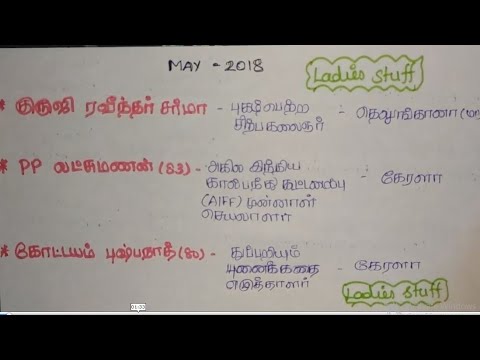 MAY - 2018
Ladies Stuff
* குருஜி ரவீந்தர் சர்மா - புகழ்பெற்ற சிற்பகலைஞர் - தெலுங்கானா
* PP லட்சுமணன் (83) - அகில இந்திய கால்பந்து கூட்டமைப்பு (AIFF) முன்னாள் செயலாளர் - கேரளா
* கோட்டயம் புஷ்பநாத் (80) - துப்பறியும் புனைக்கதை எழுத்தாளர் - கேரளா
Ladies Stuff
01:53